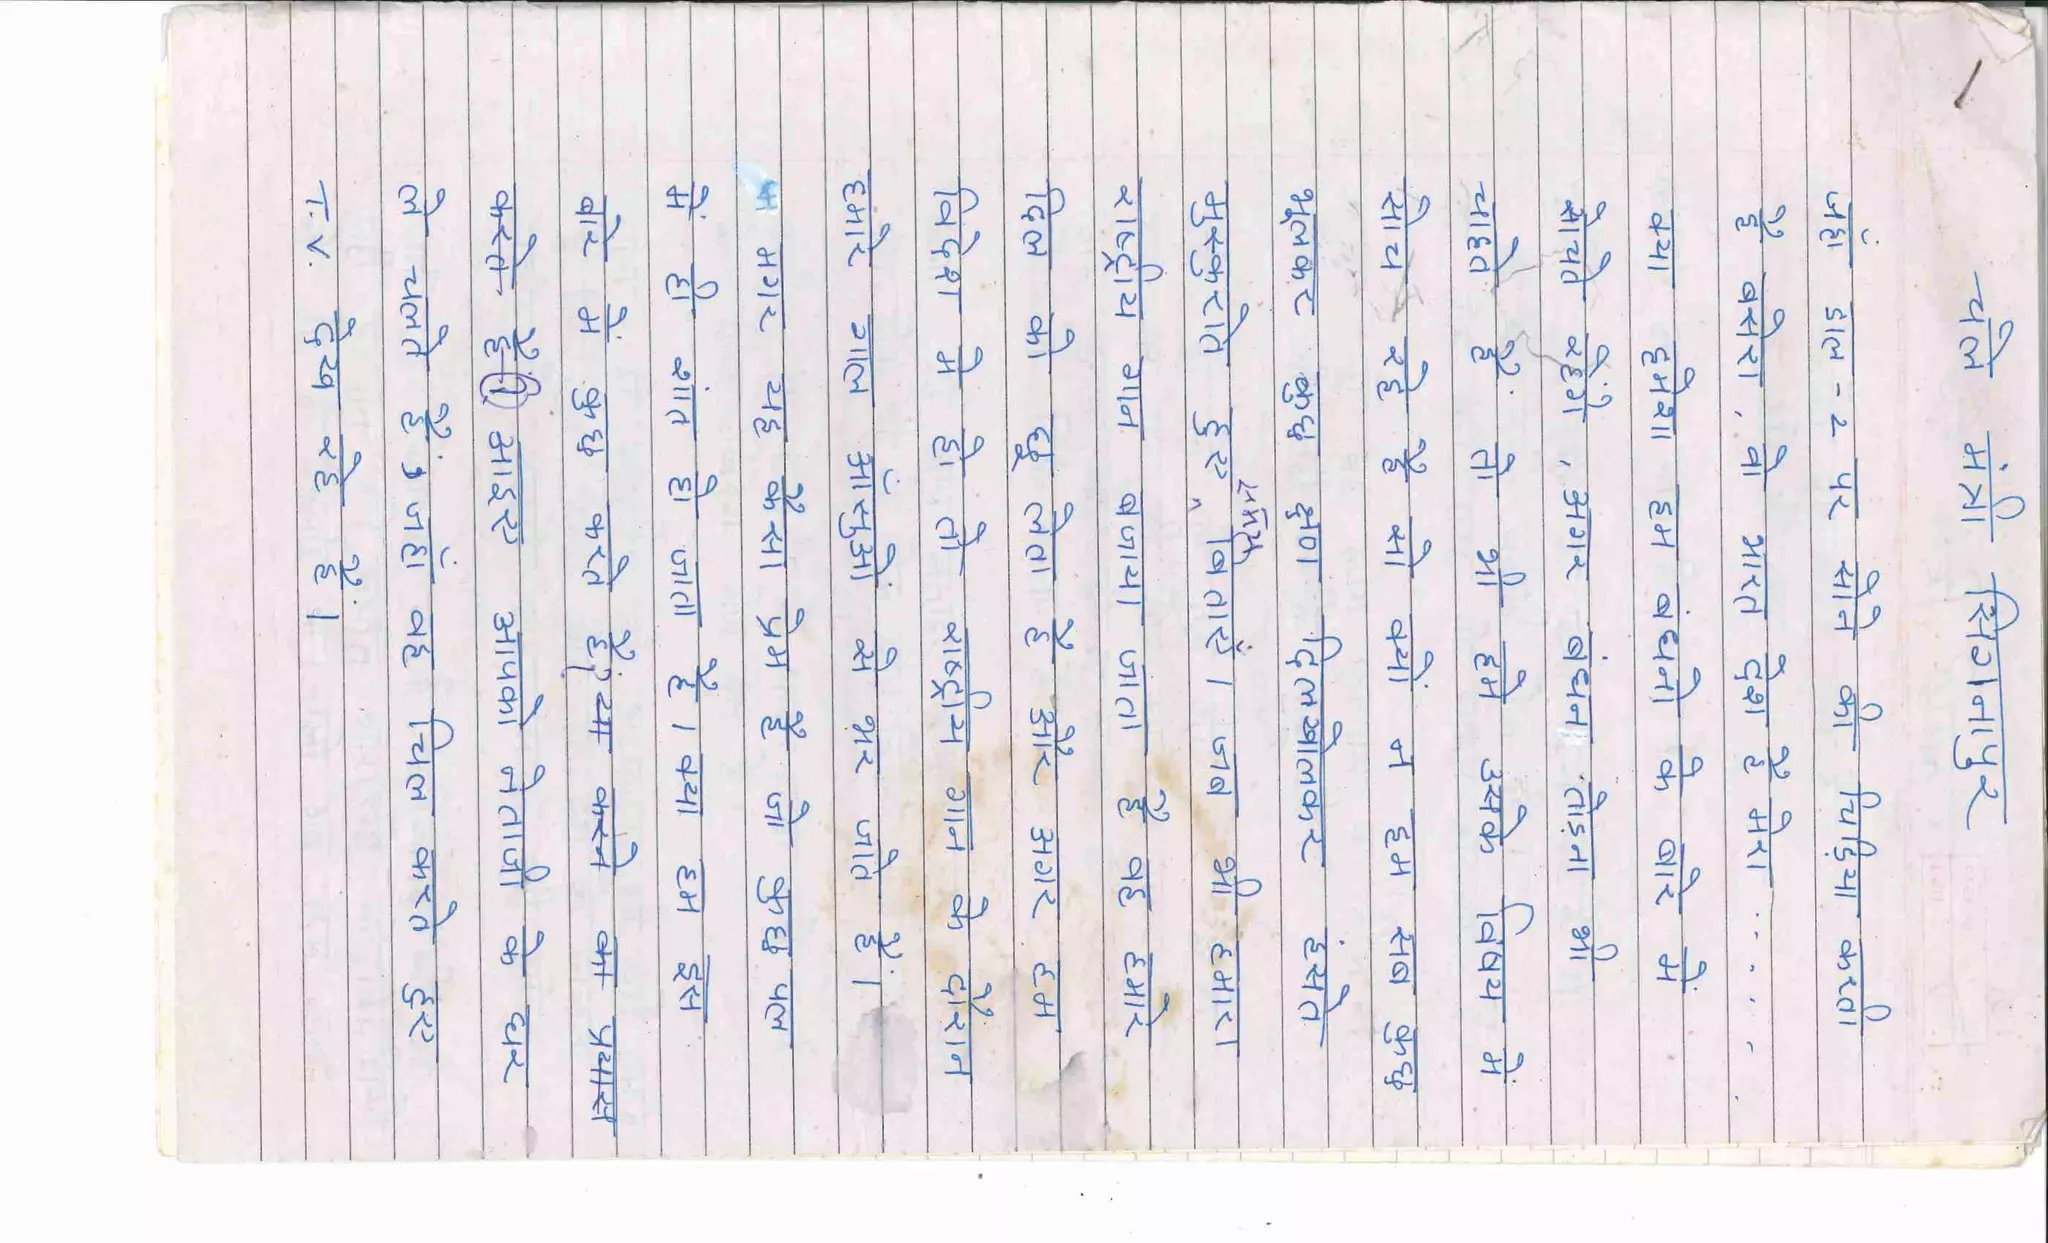 चलो मंत्री सिंगनापुर
जंहा डाल-2 पर सोने की चिड़िया करती
है बसेरा, वो भारत देश है मेरा . . . . . .
क्या हमेशा हम बंधनो के बारे में
सोचते रहेंगे, अगर बंधन तोड़ना भी
चाहते हैं तो भी हम उसीके विषय में
सोच रहे है सो क्यों न हम सब कुछ
भूलकर कुछ क्षण दिलखोलकर हंसते
मुस्कुराते हुए समय बिताएं। जब भी हमारा
राष्ट्रीय गान बजाया जाता है वह हमारे
दिल को छू लेता है और अगर हम
विदेश मे हो तो राष्ट्रीय गान के दौरान
हमारे गाल आंसुओ से भर जाते हैं।
मगर यह कैसा प्रेम है जो कुछ पल
में ही शांत हो जाता है। क्या हम इस
बारे में कुछ करते हैं, या करने का प्रयास
करते हैं। आइए आपको नेताजी के घर
ले चलते हैं, जहां वह चिल करते हुए
T.V. देख रहे हैं।